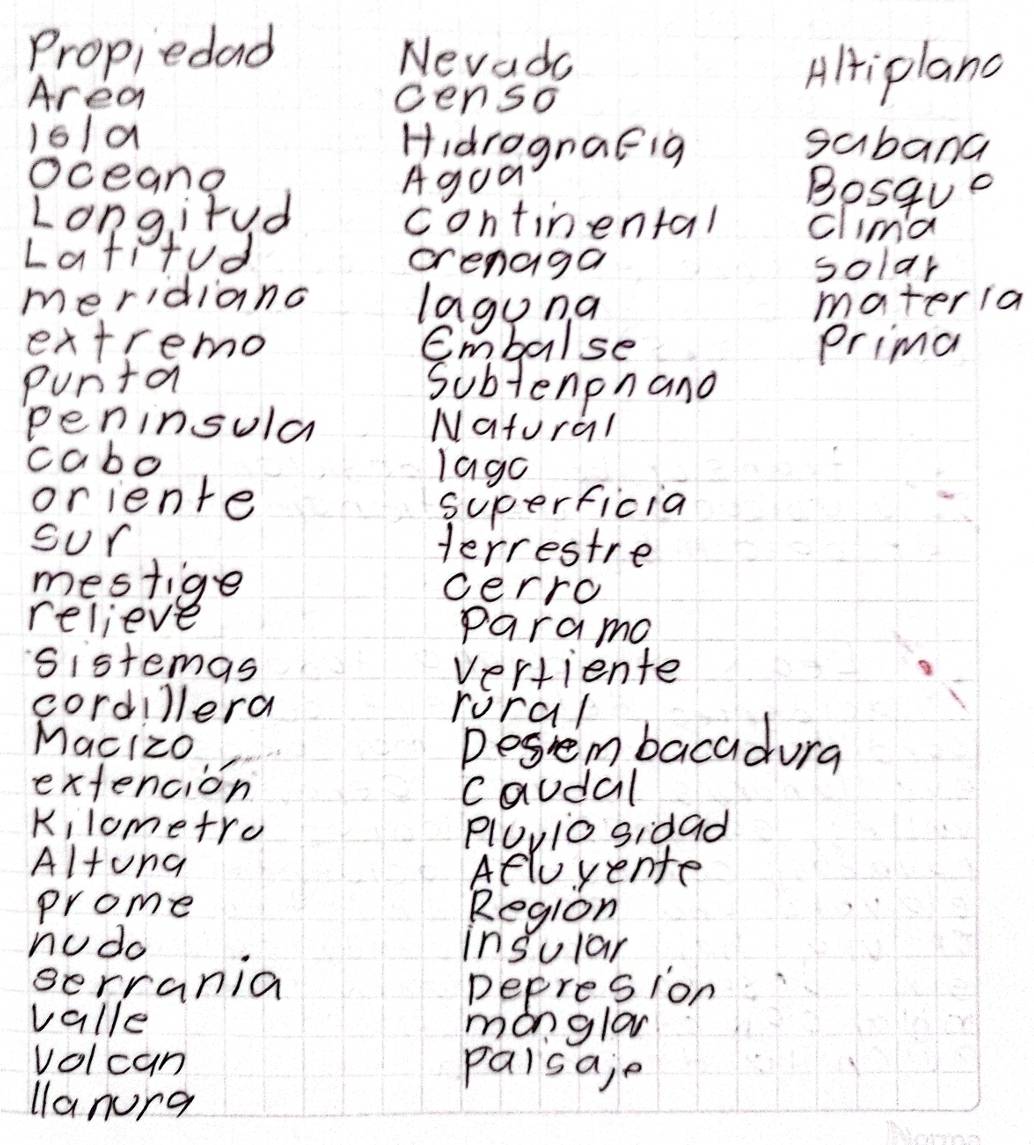 Propiedad
Area
Isla
Oceano
Longitud
Latitud
meridiano
extremo
Punta
Peninsula
cabo
oriente
Sur
mestige
relieve
Sistemas
cordillera
Macizo
extención
Kilometro
Altura
prome
nudo
serrania
Valle
Volcan
llanura
Nevado
censo
Hidrografia
Agua
continental
laguna
Embalse
Natural
lago
superficia
terrestre
cerro
Paramo
Vertiente
rural
Desembacadura
caudal
Pluviosidad
Afluyente
Región
insular
Depresión
manglar
paisaje
Altiplano
sabana
Bosque
clima
solar
materia
Prima
Norma